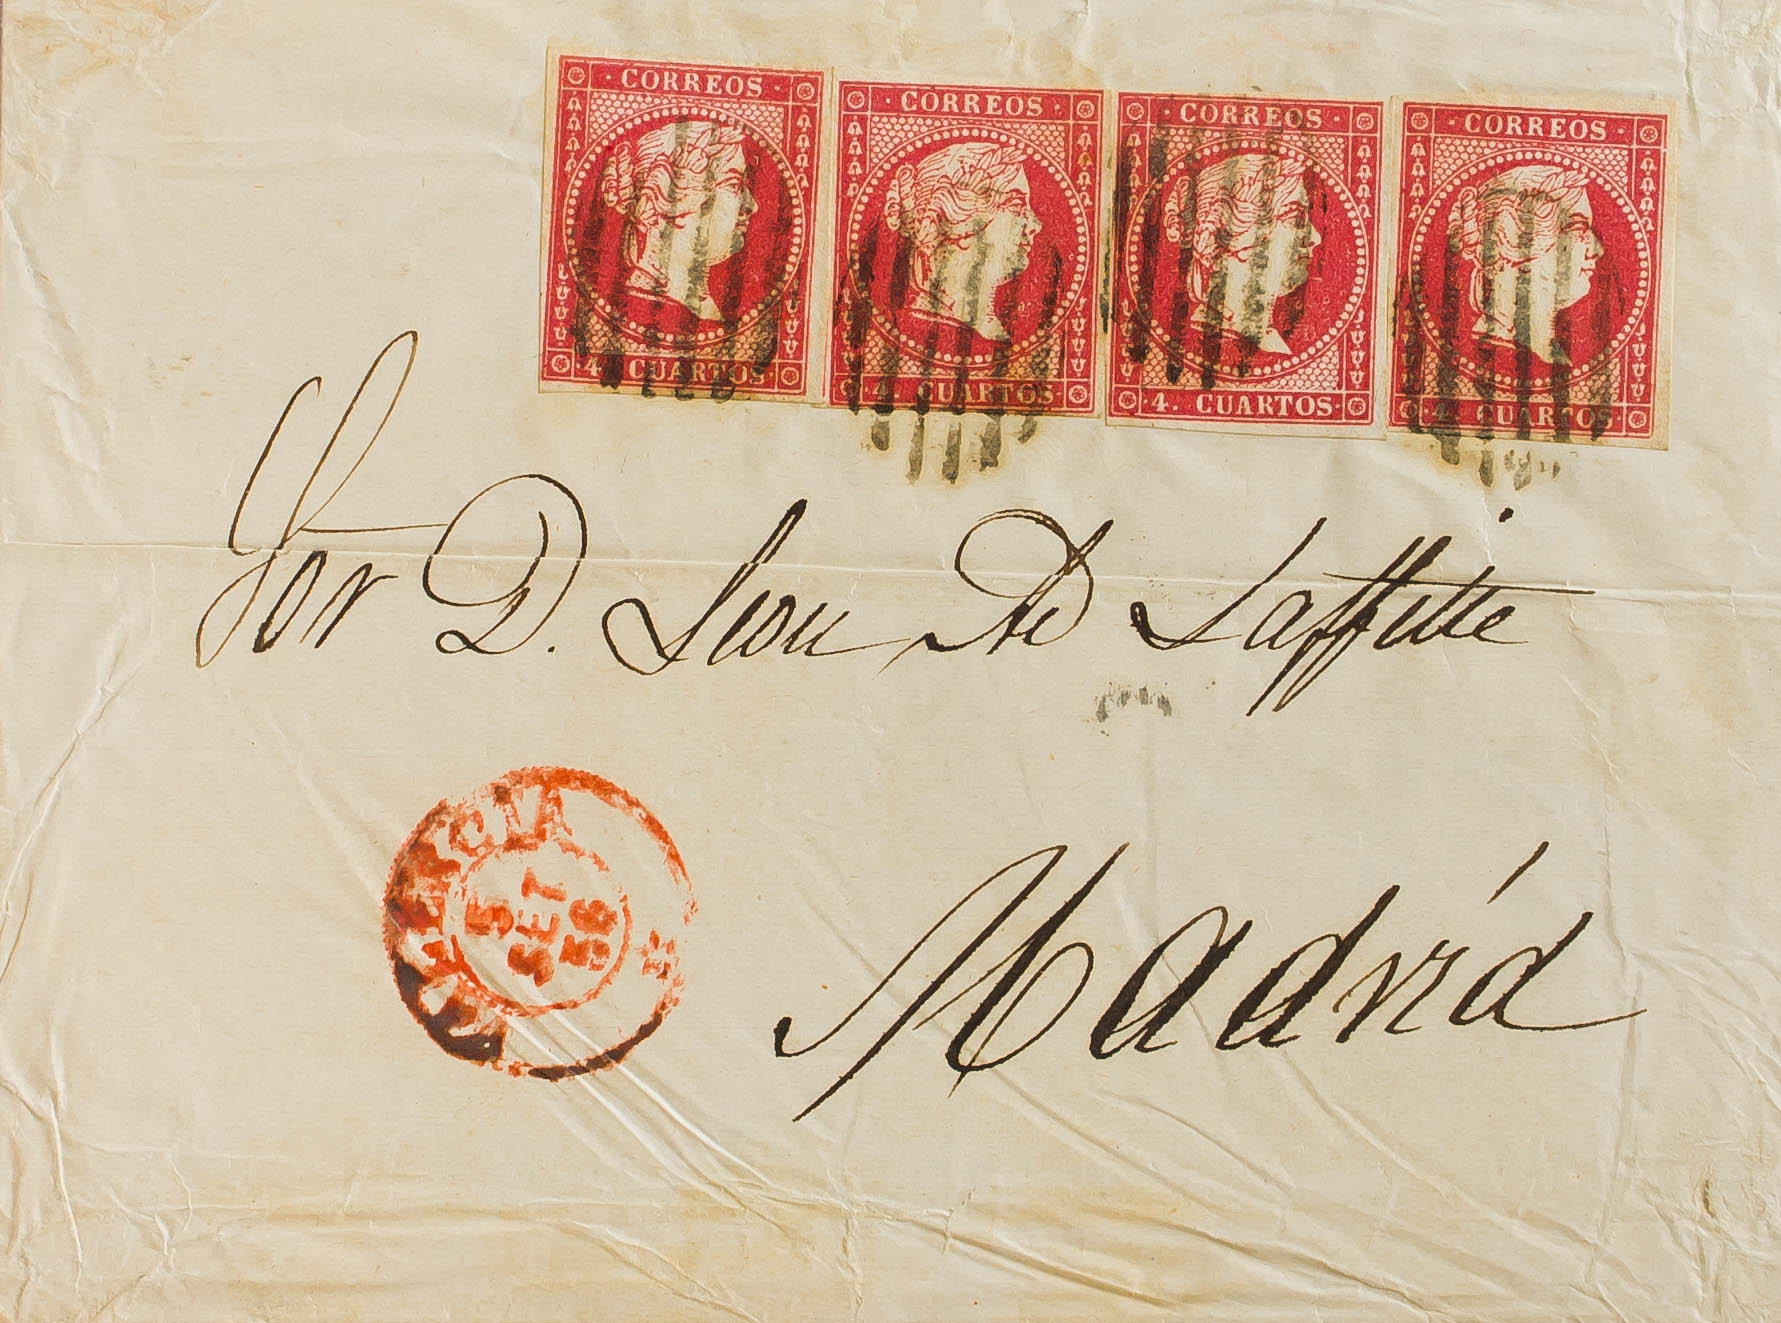 ·CORREOS·
·CORREOS·
·CORREOS·
·CORREOS·
·4. CUARTOS·
·4. CUARTOS·
·4. CUARTOS·
·4. CUARTOS·
Sor D. Leon Ad Laffitte
VALENCIA
5
SET
56
Madrid